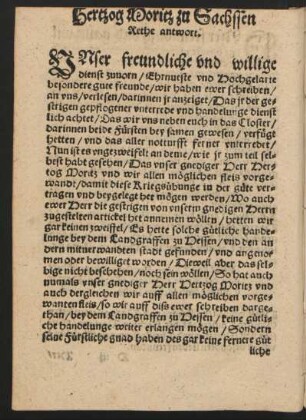 Hertzog Moritz zu Sachssen
Rethe antwort.
VNser freundliche vnd willige
dienst zuuorn / Ehrnueste vnd Hochgelarte
besondere gute freunde / wir haben ewer schreiben /
an vns / verlesen / darinnen jr anzeiget / Das jr der ge-
stigen gepflogener vnterrede vnd handelunge dienst-
lich achtet / Das wir vns neben euch in das Closter /
darinnen beide Fürsten bey samen gewesen / verfügt
hetten / vnd das aller notturfft ferner vnterredet /
Nun ist es vngezweifelt an deme / wie jr zum teil sel-
best habt gesehen / Das vnser gnediger Herr Her-
tzog Moritz vnd wir allen möglichen fleis vorge-
wandt / damit diese Kriegsübunge in der güte ver-
tragen vnd beygelegt hette mögen werden / Wo auch
ewer Herr die gestrigen von vnserm gnedigen Herrn
zugestelten artickel het annemen wöllen / hetten wir
gar keinen zweiffel / Es hette solche gütliche handelunge
bey dem Landgraffen zu Hessen / vnd den an-
dern mitverwandten stadt gefunden / vnd angeno-
men oder bewilligt worden / Dieweil aber das sel-
bige nicht beschehen / noch sein wöllen / So hat auch
numals vnser gnediger Herr Hertzog Moritz vnd
auch dergleichen wir auff allen möglichen vorge-
wanten fleis / so wir auff diss ewer schreiben darge-
than / bey dem Landgraffen zu Hessen / keine gütli-
che handelunge weiter erlangen mögen / Sondern
seine Fürstliche gnad haben des gar keine ferner güt-
liche